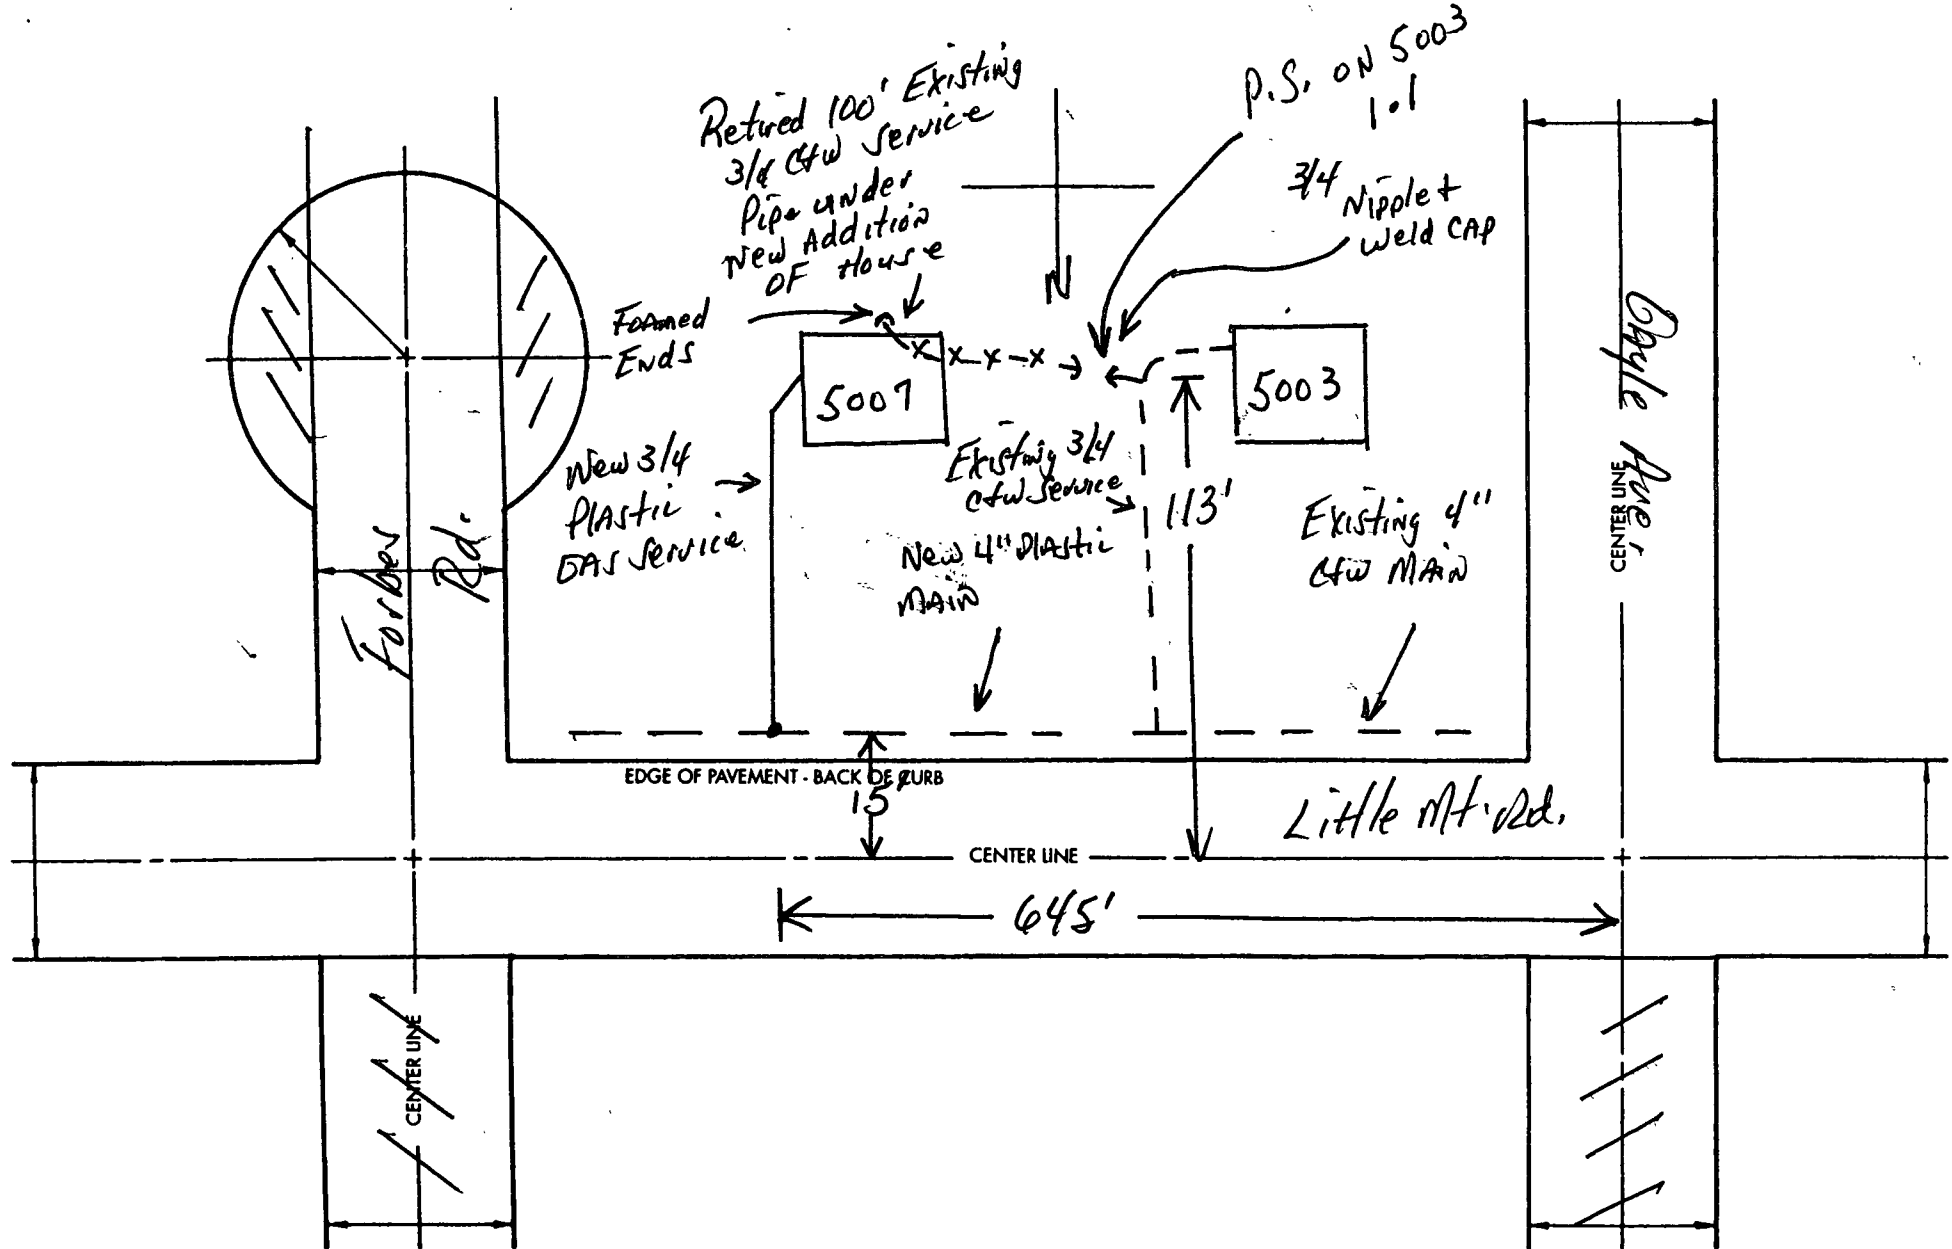 Retired 100' Existing
3/4 C+W Service
Pipe under
New Addition
OF House
P.S. ON 5003
1.1
3/4 Nipple +
Weld CAP
N
Foamed
Ends
5007
5003
New 3/4
Plastic
GAS Service
Existing 3/4
C+W Service
113'
New 4" Plastic
MAIN
Existing 4"
C+W MAIN
Forbes
Rd.
Ave.
CENTER LINE
EDGE OF PAVEMENT - BACK OF CURB
15'
Little Mt. Rd.
CENTER LINE
645'
CENTER LINE